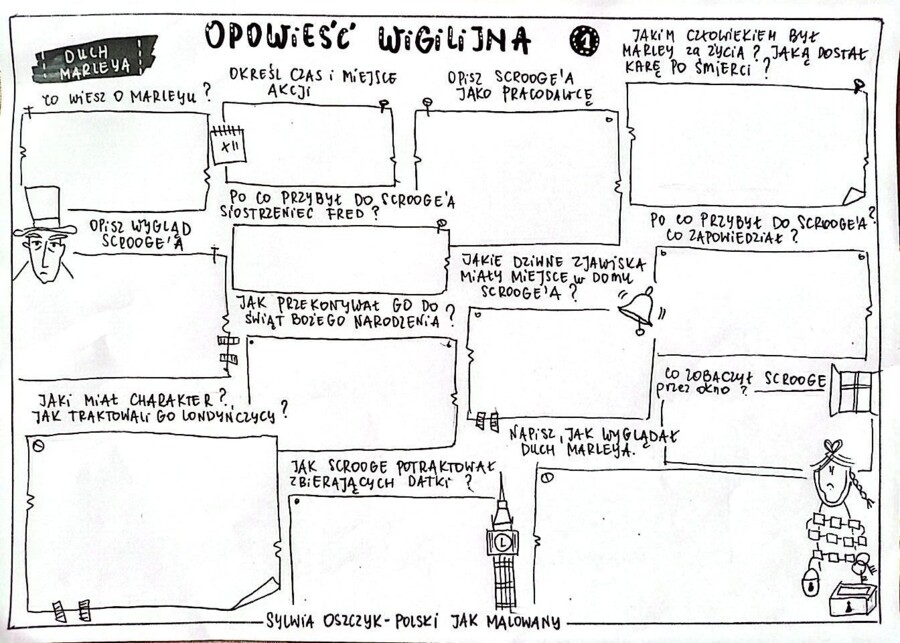 OPOWIEŚĆ WIGILIJNA 1
DUCH
MARLEYA
CO WIESZ O MARLEYU?
OKREŚL CZAS I MIEJSCE
AKCJI
XII
OPISZ SCROOGE'A
JAKO PRACODAWCĘ
JAKIM CZŁOWIEKIEM BYŁ
MARLEY za ŻYCIA? JAKĄ DOSTAŁ
KARĘ PO ŚMIERCI?
OPISZ WYGLĄD
SCROOGE'A
PO CO PRZYBYŁ DO SCROOGE'A
SIOSTRZENIEC FRED?
JAK PRZEKONYWAŁ GO DO
ŚWIĄT BOŻEGO NARODZENIA?
JAKIE DZIWNE ZJAWISKA
MIAŁY MIEJSCE w DOMU
SCROOGE'A?
PO CO PRZYBYŁ DO SCROOGE'A?
CO ZAPOWIEDZIAŁ?
CO ZOBACZYŁ SCROOGE
przez okno?
JAKI MIAŁ CHARAKTER?
JAK TRAKTOWALI GO LONDYŃCZYCY?
JAK SCROOGE POTRAKTOWAŁ
ZBIERAJĄCYCH DATKI?
NAPISZ, JAK WYGLĄDAŁ
DUCH MARLEYA.
SYLWIA OSZCZYK-POLSKI JAK MALOWANY